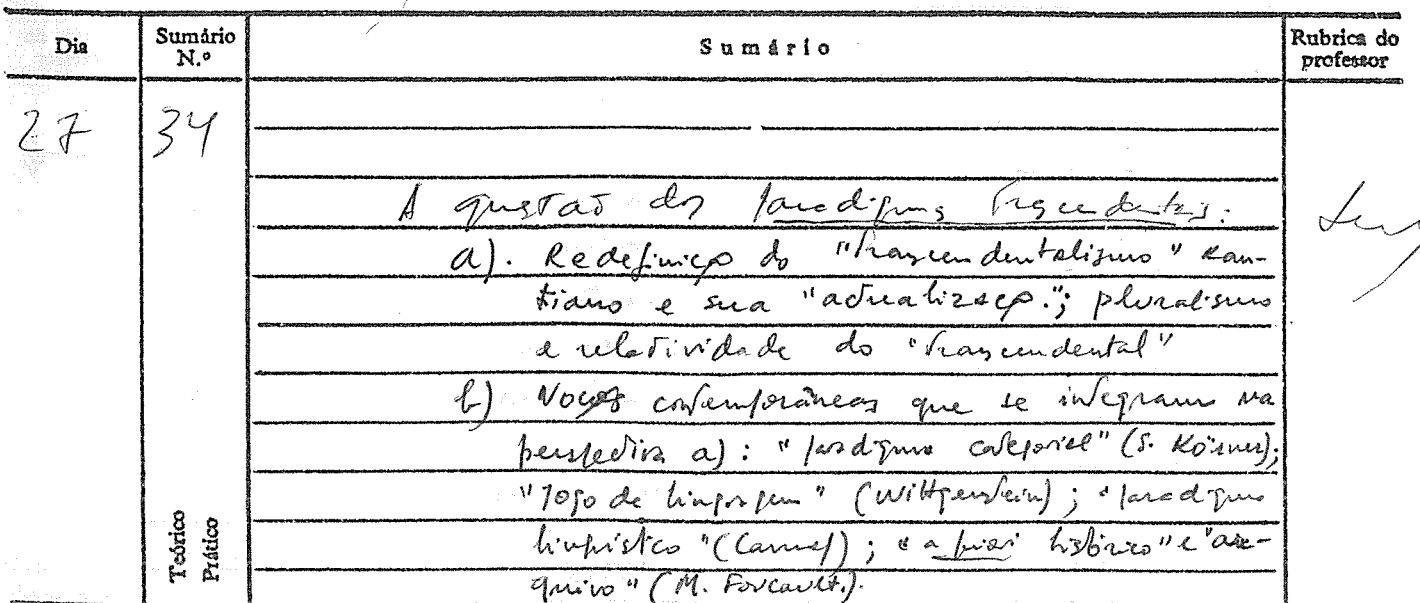 Dia
Sumário N.º
Sumário
Rubrica do professor
27
34
A questão dos paradigmas trascendentais:
a). Redefinição do "trascendentalismo" kan-
tiano e sua "actualização."; pluralismo
e relatividade do "trascendental"
b) Noções contemporâneas que se integram na
perspectiva a): "paradigma categorial" (S. Körner);
"Jogo de linguagem" (Wittgenstein); "paradigma
linguístico" (Carnap); "a priori histórico" e "ar-
quivo" (M. Foucault.).
Teórico
Prático